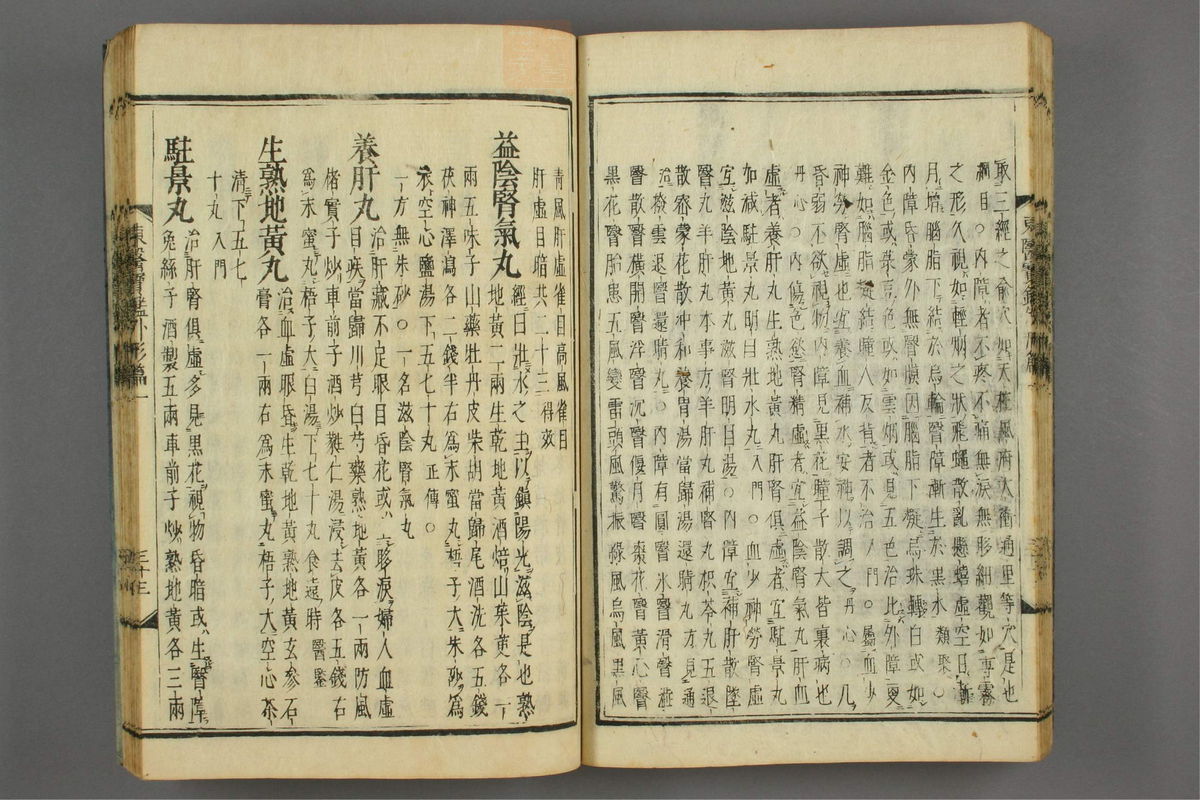 取三經之俞穴如天柱風府太衝通里等穴是也
綱目○內障者不疼不痛無淚無形細觀如薄霧
之形久視如輕烟之狀飛蠅散亂懸蟢虛空日漸
月增腦脂下結於烏輪瞖障漸生於黑水類聚○
內障昏蒙外無瞖膜因腦脂下凝烏珠轉白或如
金色或綠豆色或如雲烟或見五色治比外障更
難如腦脂凝結瞳人反背者不治入門○屬血少
神勞腎虛也宜養血補水安神以調之丹心○凡
昏弱不欲視物內障見黑花瞳子散大皆裏病也
丹心○內傷色慾腎精虛者宜益陰腎氣丸肝血
虛者養肝丸生熟地黃丸肝腎俱虛者宜駐景丸
如減駐景丸明目壯水丸入門○血少神勞腎虛
宜滋陰地黃丸滋腎明目湯○內障宜補肝散墜
瞖丸羊肝丸本事方羊肝丸補腎丸杞苓丸五退
散密蒙花散冲和養胃湯當歸湯還睛丸方見通
治撥雲退瞖還睛丸○內障有圓瞖氷瞖滑瞖澁
瞖散瞖橫開瞖浮瞖沉瞖偃月瞖棗花瞖黃心瞖
黑花瞖胎患五風變雷頭風驚振綠風烏風黑風
靑風肝虛雀目高風雀目
肝虛目暗共二十三得效
益陰腎氣丸 經曰壯水之主以鎭陽光滋陰是也熟
地黃二兩生乾地黃酒焙山茱萸各一
兩五味子山藥牡丹皮柴胡當歸尾酒洗各五錢
茯神澤瀉各二錢半右爲末蜜丸梧子大朱砂爲
衣空心鹽湯下五七十丸正傳○
一方無朱砂○一名滋陰腎氣丸
養肝丸 治肝臟不足眼目昏花或眵淚婦人血虛
目疾當歸川芎白芍藥熟地黃各一兩防風
楮實子炒車前子酒炒蕤仁湯浸去皮各五錢右
爲末蜜丸梧子大白湯下七十丸食遠時醫鑑
生熟地黃丸 治血虛眼昏生乾地黃熟地黃玄參石
膏各一兩右爲末蜜丸梧子大空心茶
淸下五七
十丸入門
駐景丸 治肝腎俱虛多見黑花視物昏暗或生瞖障
兔絲子酒製五兩車前子炒熟地黃各三兩
東醫寶鑑外形篇一